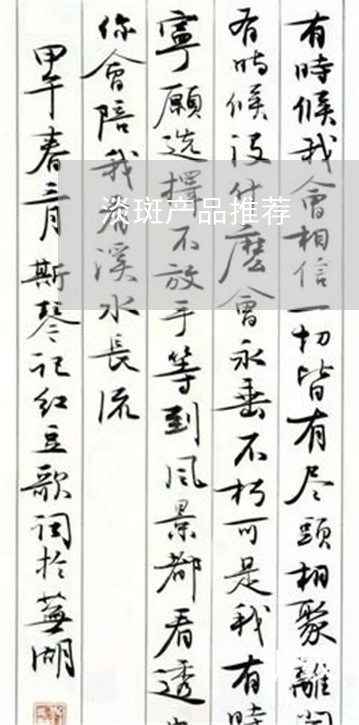 有時候我會相信一切皆有尽頭相聚離開
有時候没什麽會永垂不朽可是我有時
寧願选擇不放手等到风景都看透
你會陪我看溪水長流
甲午春三月斯琴记红豆歌词於蕪湖
淡斑产品推荐